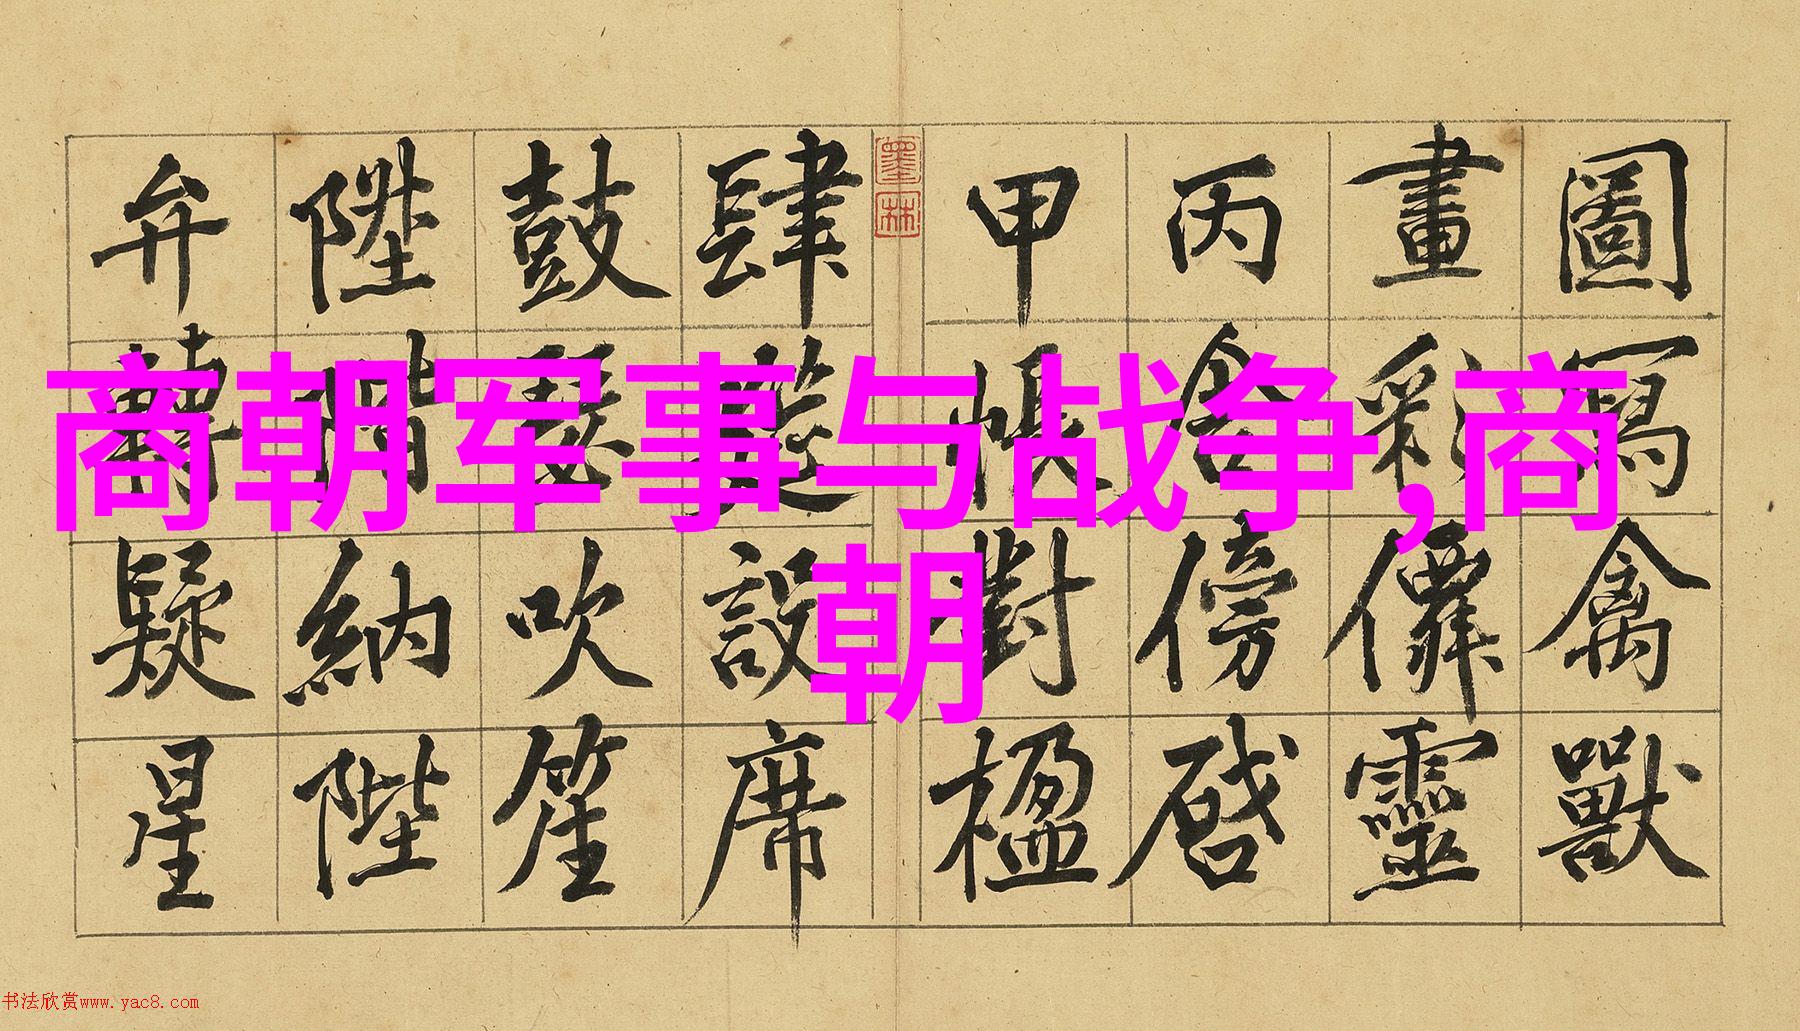 商朝军事与战争,商
朝
圖寫禽獸
畫彩僊靈
丙舍傍啓
甲帳對楹
墨林
肆筵設席
鼓瑟吹笙
陞階納陛
弁轉疑星
书法欣赏www.yac8.com